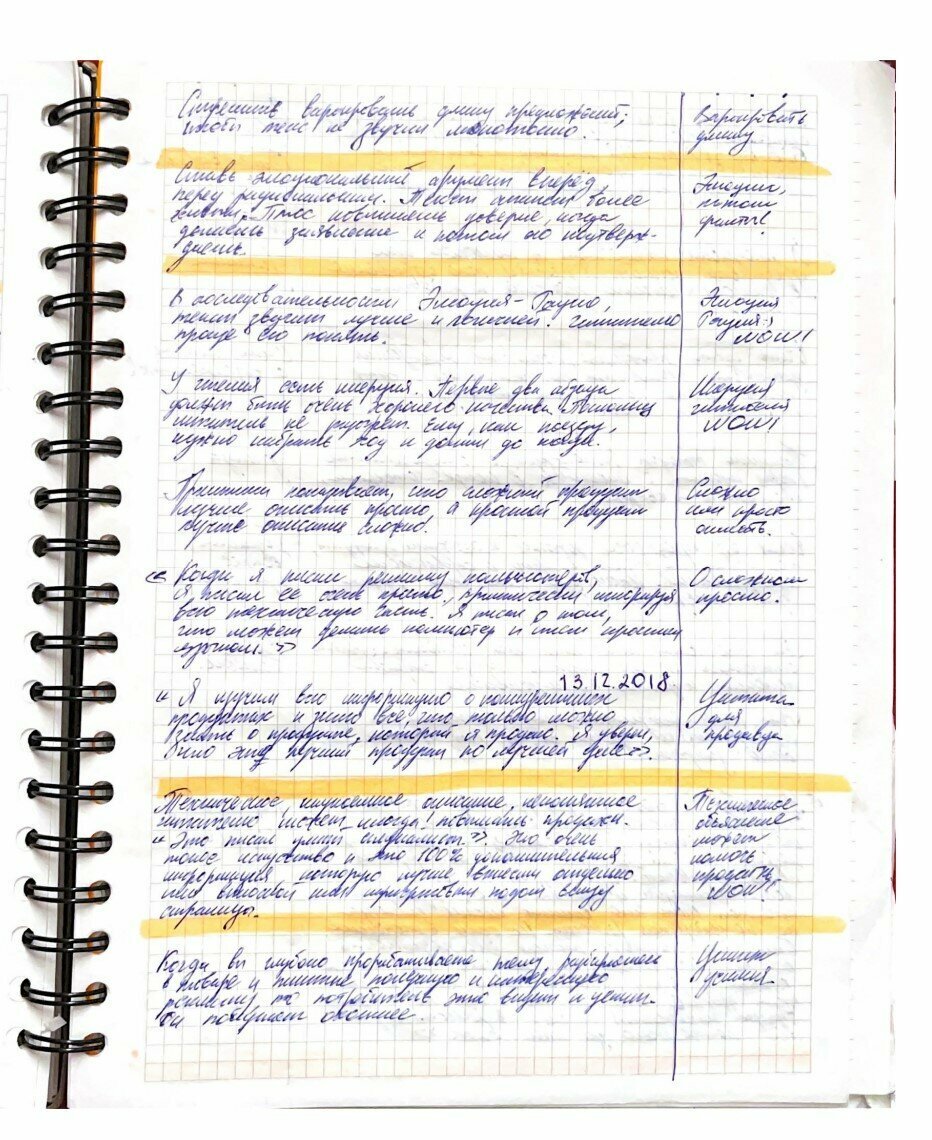 варьирование длины предложений,
чтобы текс не звучал монотонно.
Варьировать
длину
Ставь эмоциональный аргумент вперёд,
перед рациональным. Текст более
живым. Плюс повышаешь доверие, когда
делаешь заявление и потом его подтверж-
даешь.
Эмоции,
потом
факты!
В последовательности Эмоция-Рацио,
текст звучит лучше и логичней. Читателю
проще его понять.
Эмоция
Рацио
WOW!
У чтения есть инерция. Первые два абзаца
должны быть очень хорошего качества.
читатель не разогрет. Ему, как поезду,
нужно набрать ход и до конца.
Инерция
читателя
WOW!
Практики что сложный продукт
лучше описать просто, а простой продукт
лучше описать сложно.
Сложно
или просто
« Когда я писал рекламу компьютеров,
я писал её очень просто, практически игнорируя
всю техническую часть. Я писал о том,
что может делать компьютер и этом простым
языком. »
О сложном
просто.
13.12.2018
« Я изучил всю информацию о
продуктах и знаю всё, что только можно
знать о продукте, который я продаю. Я уверен,
что это лучший продукт по лучшей цене».
Цитата
для
продавца
Техническое, описание, непонятное
читателю может иногда продажи.
« Это писал специалист.» Это очень
тонкое искусство и это 100% дополнительная
информация которую лучше вынести отдельно
или внизу
страницы.
Техническое
объяснение
может
помочь
продать
WOW!
Когда вы глубоко прорабатываете тему, разбираетесь
в товаре и пишите полезную и интересную
рекламу, то потребитель это видит и ценит.
Он покупает охотнее.
Ценит
усилия